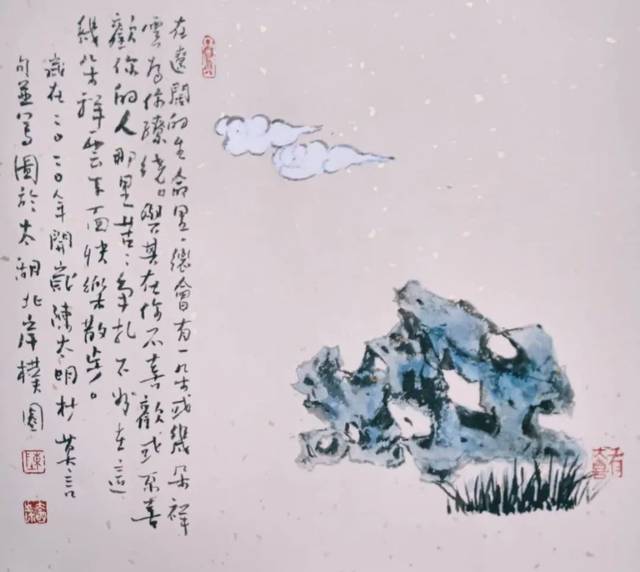 在遼闊的生命里，總會有一朵或幾朵祥
雲為你繚繞。與其在你不喜歡或不喜
歡你的人那里苦苦掙扎不如在這
幾朵祥雲下面快樂散步。
歲在二〇二〇年開歲陳大明抄莫言
句並寫圖於太湖北岸樸園